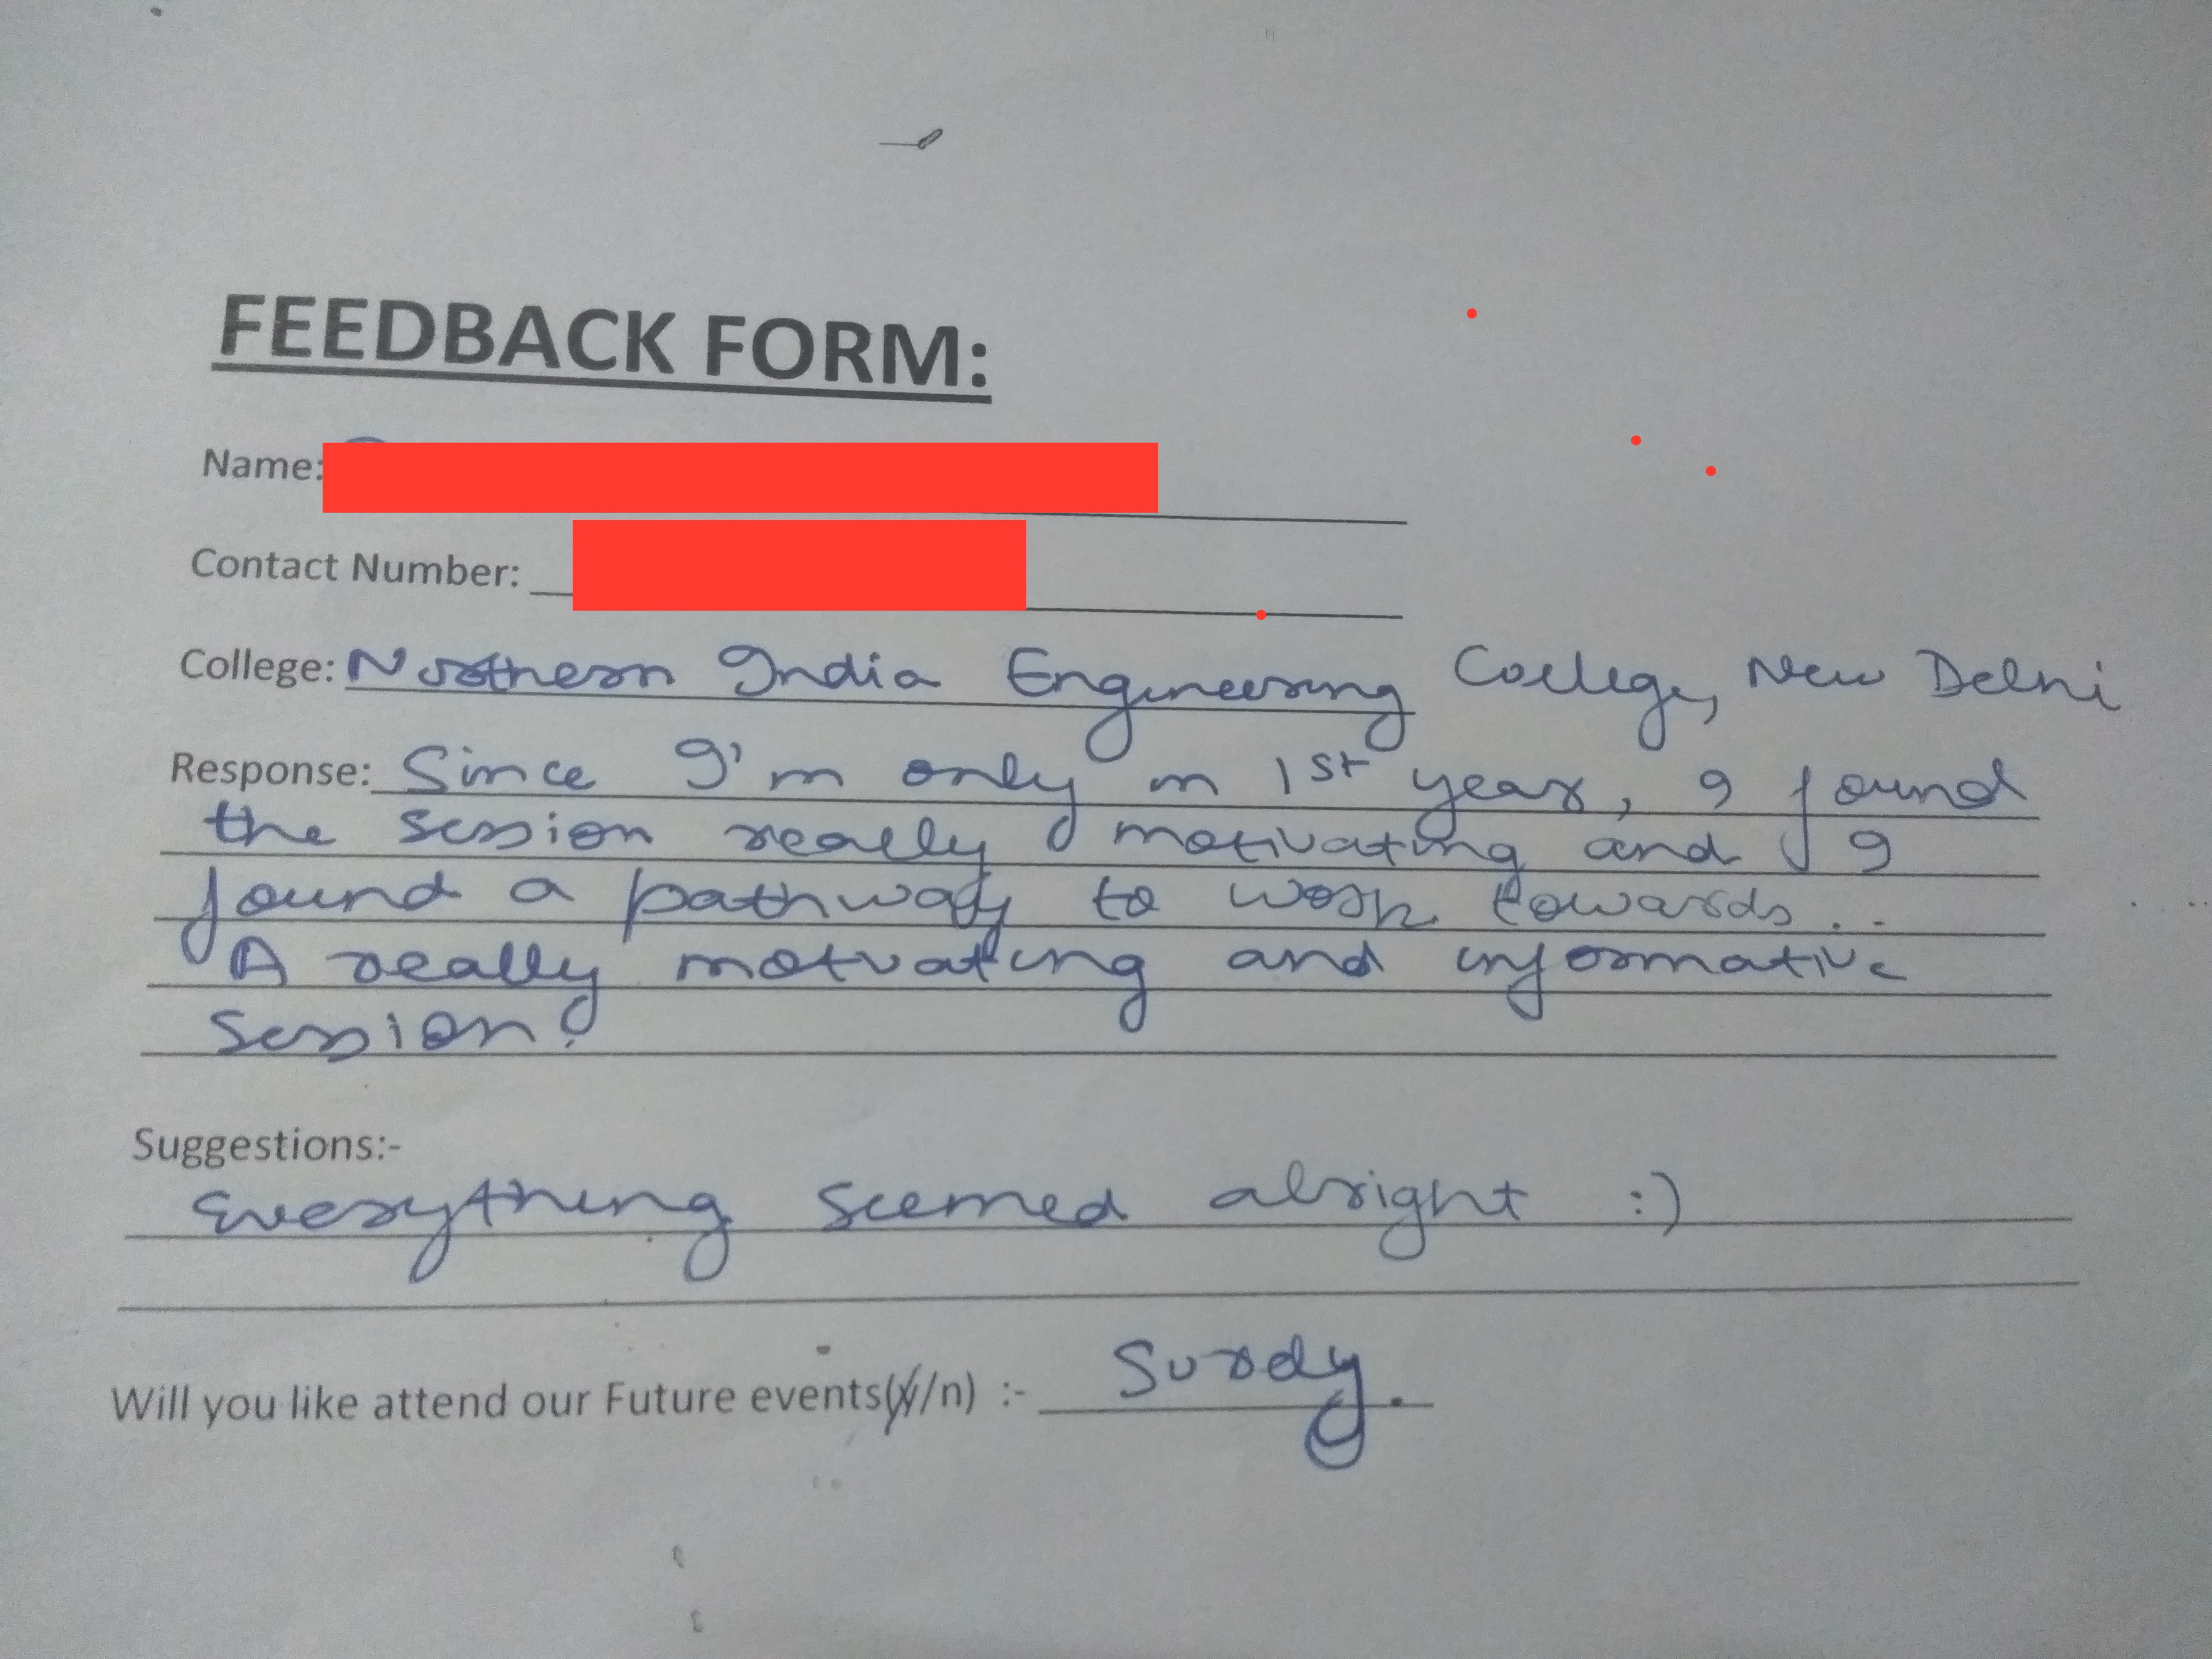 FEEDBACK FORM:
Name:
Contact Number:
College: Northern India Engineering College, New Delhi
Response: Since I'm only in 1st year, I found
the session really motivating and I
found a pathway to work towards...
A really motivating and informative
session!
Suggestions:-
Everything seemed alright :)
Will you like attend our Future events(y/n) :- Surely.